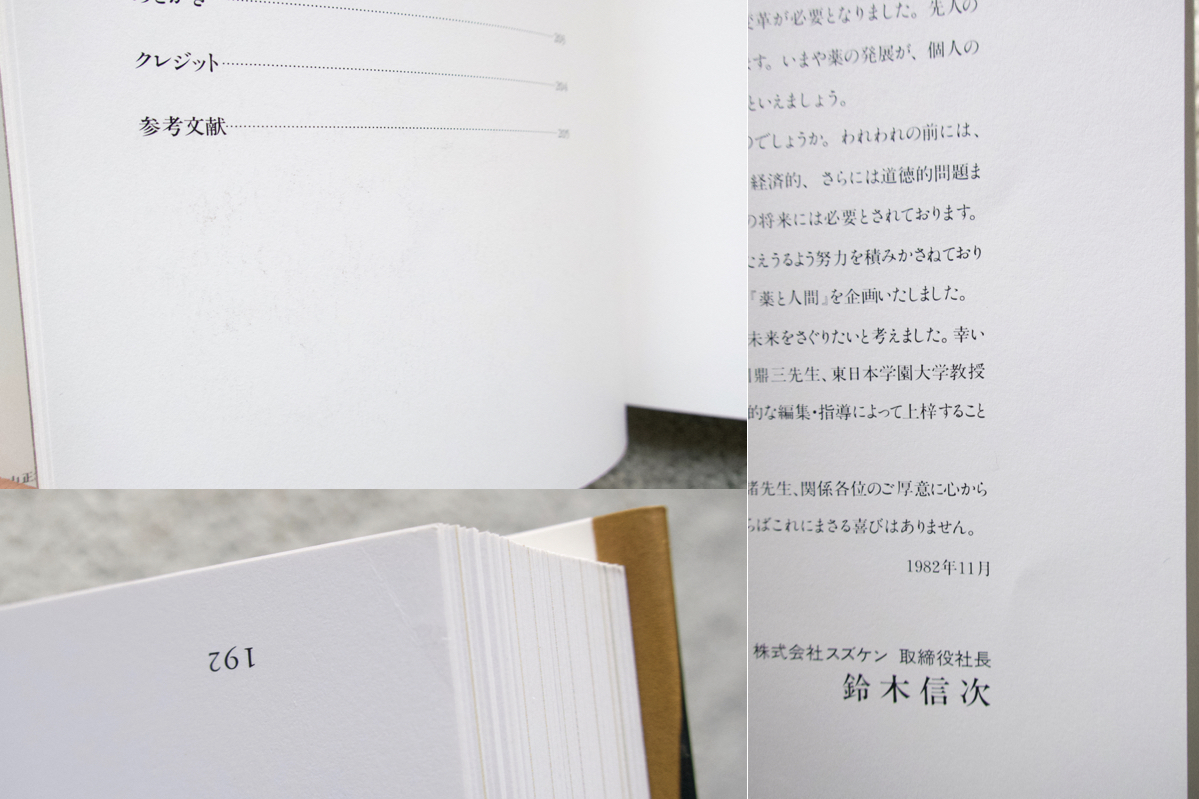 あとがき
クレジット 204
参考文献 205
山正
192
変革が必要となりました。先人の
ます。いまや薬の発展が、個人の
といえましょう。
のでしょうか。われわれの前には、
経済的、さらには道徳的問題ま
の将来には必要とされております。
たえうるよう努力を積みかさねており
『薬と人間』を企画いたしました。
未来をさぐりたいと考えました。幸い
鼎三先生、東日本学園大学教授
的な編集・指導によって上梓すること
諸先生、関係各位のご厚意に心から
らばこれにまさる喜びはありません。
1982年11月
株式会社スズケン 取締役社長
鈴木信次